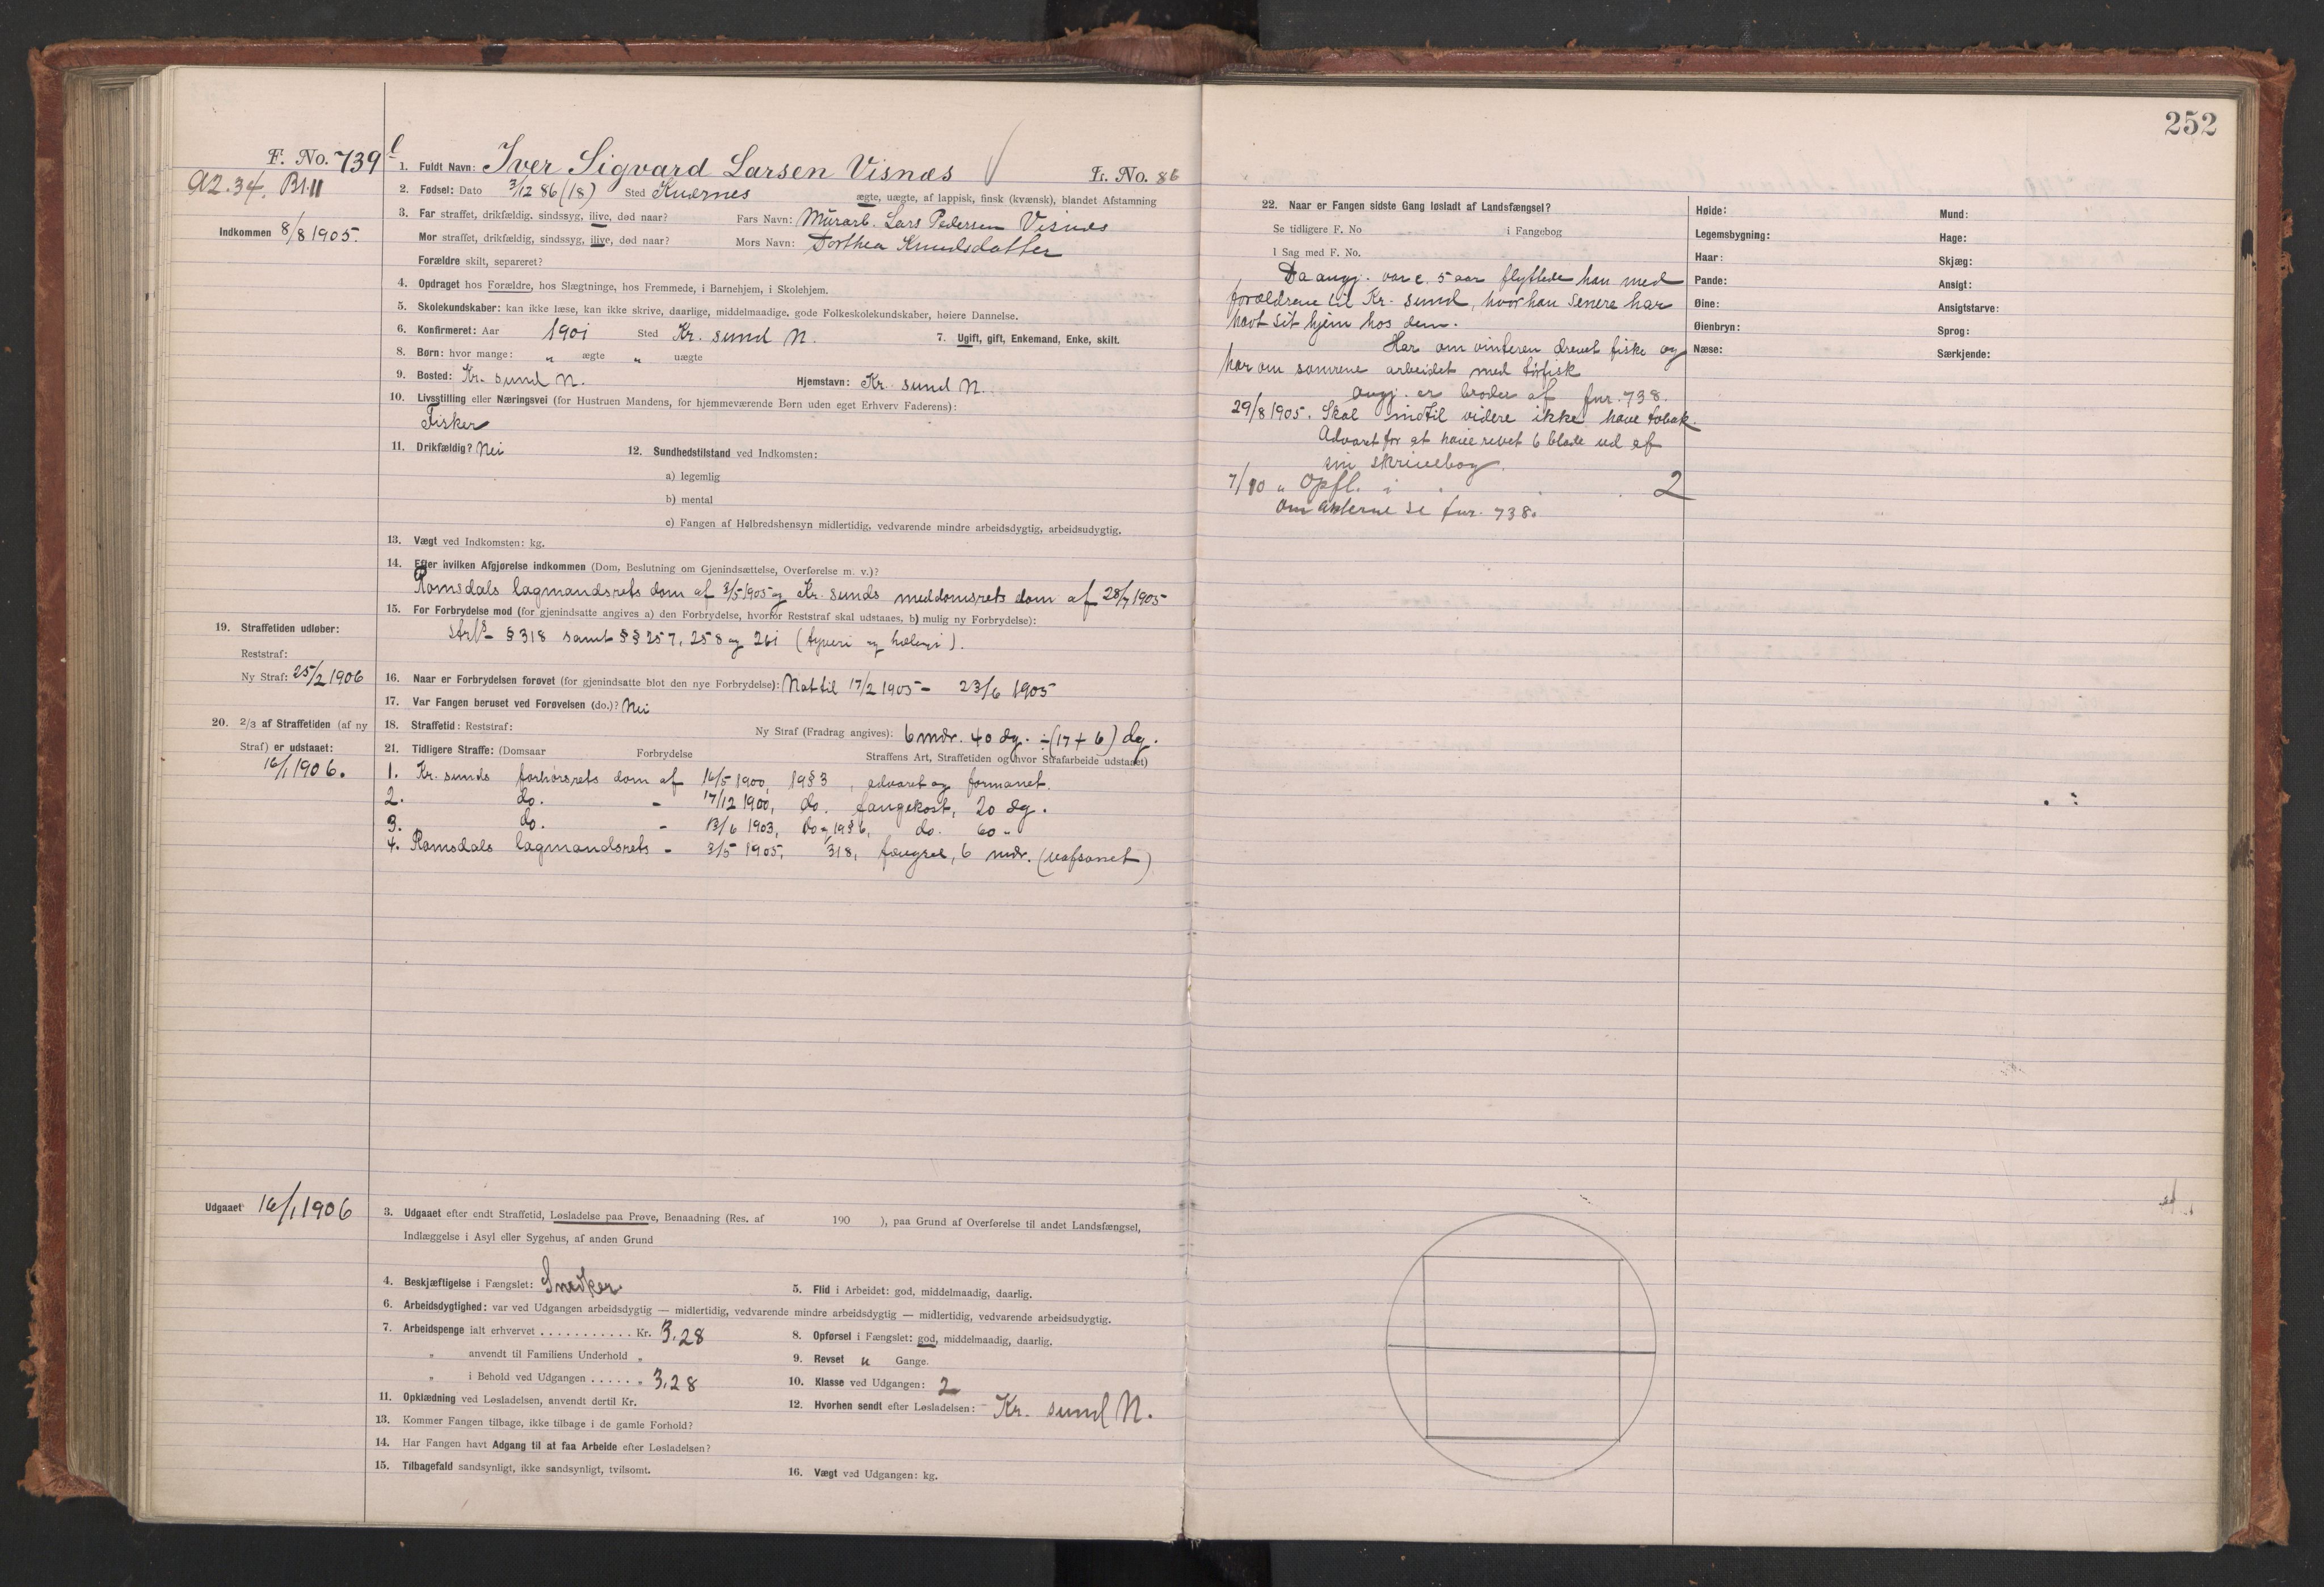 252
F. No. 739
A2.34. Bl.11
Indkommen 8/8 1905.
1. Fuldt Navn: Iver Sigvard Larsen Visnæs L. No. 86
2. Fødsel: Dato 3/12 86 (18) Sted Kværnes ægte, uægte, af lappisk, finsk (kvænsk), blandet Afstamning
3. Far straffet, drikfældig, sindssyg, ilive, død naar? Fars Navn: Murarb. Lars Pedersen Visnes
Mor straffet, drikfældig, sindssyg, ilive, død naar? Mors Navn: Dorthea Knudsdatter
Forældre skilt, separeret?
4. Opdraget hos Forældre, hos Slægtninge, hos Fremmede, i Barnehjem, i Skolehjem.
5. Skolekundskaber: kan ikke læse, kan ikke skrive, daarlige, middelmaadige, gode Folkeskolekundskaber, høiere Dannelse.
6. Konfirmeret: Aar 1901 Sted Kr. sund N. 7. Ugift, gift, Enkemand, Enke, skilt.
8. Børn: hvor mange: " ægte " uægte
9. Bosted: Kr. sund N. Hjemstavn: Kr. sund N.
10. Livsstilling eller Næringsvei (for Hustruen Mandens, for hjemmeværende Børn uden eget Erhverv Faderens):
Fisker
11. Drikfældig? Nei 12. Sundhedstilstand ved Indkomsten:
a) legemlig
b) mental
c) Fangen af Helbredshensyn midlertidig, vedvarende mindre arbeidsdygtig, arbeidsudygtig.
13. Vægt ved Indkomsten: kg.
14. Efter hvilken Afgjørelse indkommen (Dom, Beslutning om Gjenindsættelse, Overførelse m. v.)?
Romsdals lagmandsrets dom af 3/5 1905 og Kr. sunds meddomsrets dom af 28/7 1905
15. For Forbrydelse mod (for gjenindsatte angives a) den Forbrydelse, hvorfor Reststraf skal udstaaes, b) mulig ny Forbrydelse):
§ 318 samt §§ 257, 258 og 261 (tyveri og hæleri).
19. Straffetiden udløber:
Reststraf:
Ny Straf: 25/2 1906
16. Naar er Forbrydelsen forøvet (for gjenindsatte blot den nye Forbrydelse): Nat til 17/2 1905 - 23/6 1905
17. Var Fangen beruset ved Forøvelsen (do.)? Nei
20. 2/3 af Straffetiden (af ny
Straf) er udstaaet:
16/1 1906.
18. Straffetid: Reststraf: Ny Straf (Fradrag angives): 6 mdr. 40 dg. ÷ (17 + 6) dg.
21. Tidligere Straffe: (Domsaar Forbrydelse Straffens Art, Straffetiden og hvor Strafarbeide udstaaet)
1. Kr. sunds forhørsrets dom af 16/5 1900, 19 § 3, advaret og formanet.
2. do. - 17/12 1900, do. fangekost, 20 dg.
3. do. - 13/6 1903, do og 19 § 6, do. 60 "
4. Romsdals lagmandsrets - 3/5 1905, 318, fængsel, 6 mdr. (uafsonet)
Udgaaet 16/1 1906
3. Udgaaet efter endt Straffetid, Løsladelse paa Prøve, Benaadning (Res. af 190 ), paa Grund af Overførelse til andet Landsfængsel,
Indlæggelse i Asyl eller Sygehus, af anden Grund
4. Beskjæftigelse i Fængslet: Snedker 5. Flid i Arbeidet: god, middelmaadig, daarlig.
6. Arbeidsdygtighed: var ved Udgangen arbeidsdygtig — midlertidig, vedvarende mindre arbeidsdygtig — midlertidig, vedvarende arbeidsudygtig.
7. Arbeidspenge ialt erhvervet . . . . . . . . . . . Kr. 3,28 8. Opførsel i Fængslet: god, middelmaadig, daarlig.
" anvendt til Familiens Underhold " 9. Revset " Gange.
" i Behold ved Udgangen . . . . . " 3,28 10. Klasse ved Udgangen: 2
11. Opklædning ved Løsladelsen, anvendt dertil Kr. 12. Hvorhen sendt efter Løsladelsen: Kr. sund N.
13. Kommer Fangen tilbage, ikke tilbage i de gamle Forhold?
14. Har Fangen havt Adgang til at faa Arbeide efter Løsladelsen?
15. Tilbagefald sandsynligt, ikke sandsynligt, tvilsomt. 16. Vægt ved Udgangen: kg.
22. Naar er Fangen sidste Gang løsladt af Landsfængsel?
Se tidligere F. No i Fangebog
I Sag med F. No.
Da angj. var c. 5 aar flyttede han med
forældrene til Kr. sund, hvor han senere har
havt sit hjem hos dem.
Har om vinteren drevet fiske og
har om somrene arbeidet med tørfisk
angj. er broder af fnr. 738.
29/8 1905. Skal indtil videre ikke have tobak.
Advaret for at have revet 6 blade ud af
sin skrivebog.
7/10 " Opfl. i 2
Om akterne se fnr. 738.
Høide: Mund:
Legemsbygning: Hage:
Haar: Skjæg:
Pande: Ansigt:
Øine: Ansigtstarve:
Øienbryn: Sprog:
Næse: Særkjende: